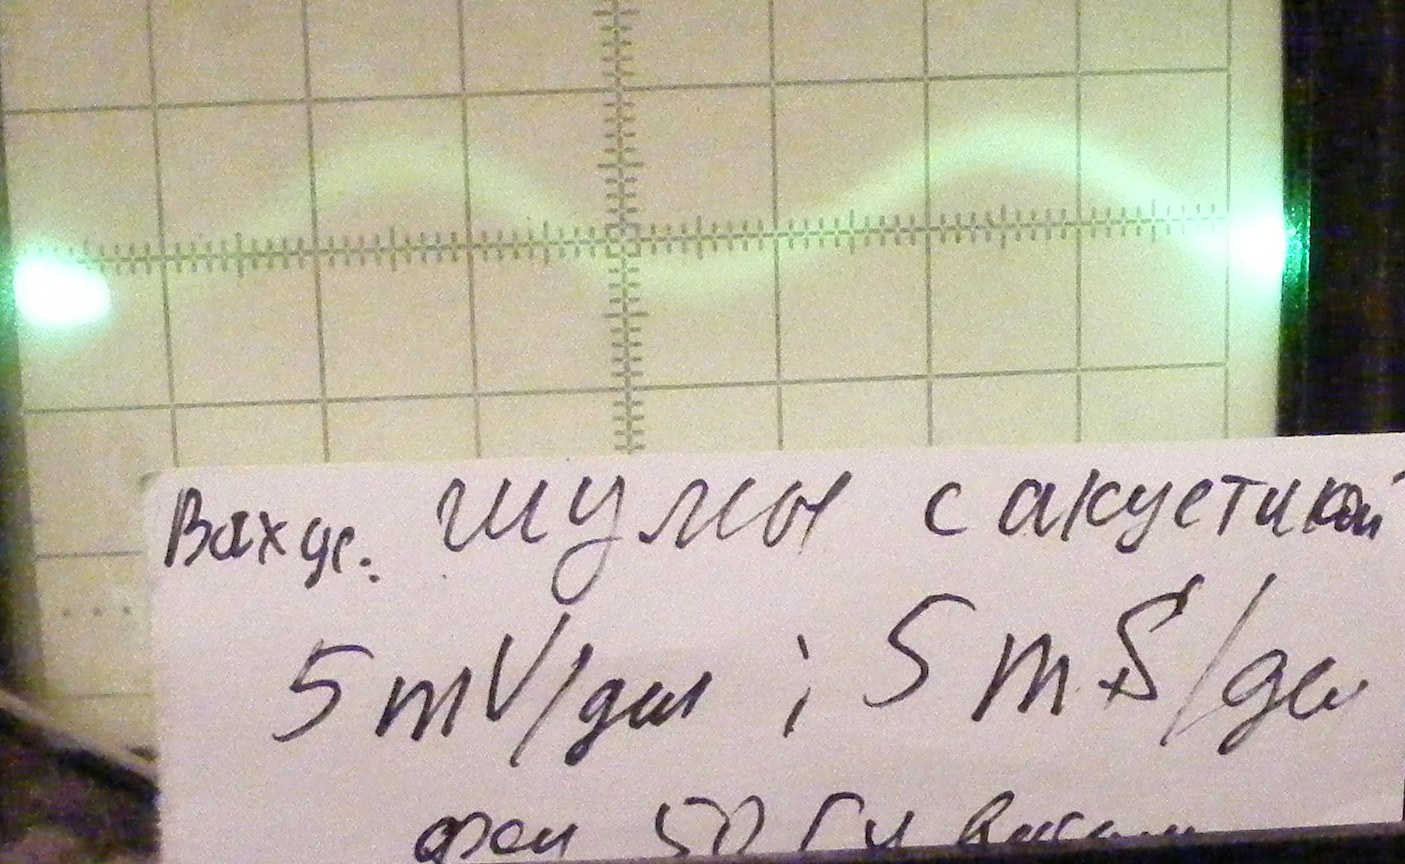 шумы с акустикой
5 mV/дел ; 5 mS/дел
фон 50 Гц